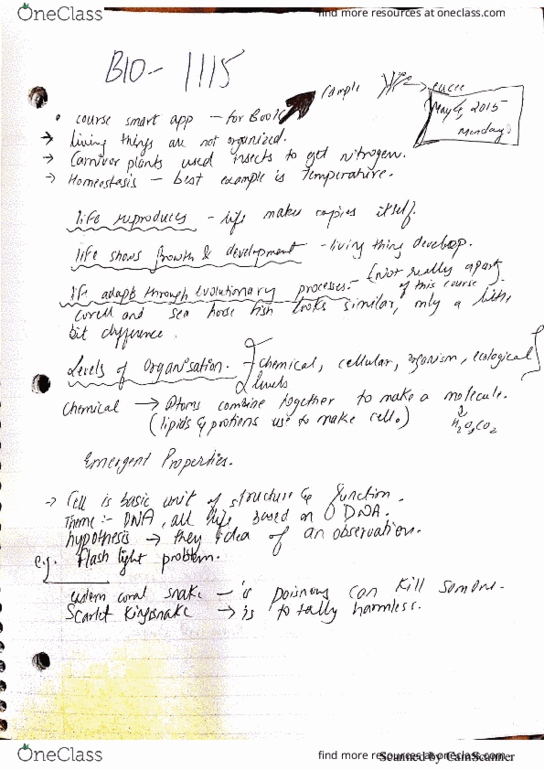 OneClass
find more resources at oneclass.com
BIO- 1115
Sample
May 4, 2015
Monday
• course smart app - for Books
→ Living things are not organized.
→ Carnivor plants used insects to get nitrogen.
→ Homeostasis - best example is Temperature.
life reproduces - life makes copies itself.
life shows growth & development - living thing develop.
life adapt through Evolutionary processes - (Not really apart
of this course)
and sea horse fish looks similar, only a little
bit difference.
Levels of Organisation. - {Chemical, cellular, organism, ecological}
levels
Chemical → Atoms combine together to make a molecule.
(lipids & protiens use to make cell.)
H2O, CO2
Emergent Properties.
→ Cell is basic unit of structure & function.
Theme :- DNA, all life based on DNA.
hypothesis → they idea of an observation.
e.g. Flash light problem.
eastern coral snake - is poisnous can kill
Scarlet Kingsnake → is totally harmless.
OneClass
find more resources at oneclass.com
Scanned by CamScanner